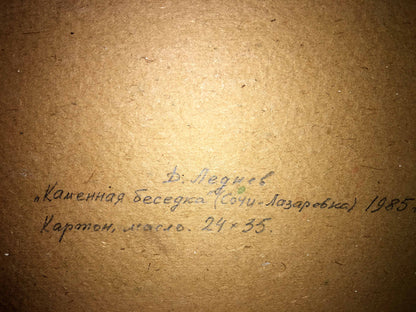 Д. Леднев
„Каменная беседка (Сочи-Лазаревка) 1985.
Картон, масло. 24×35.